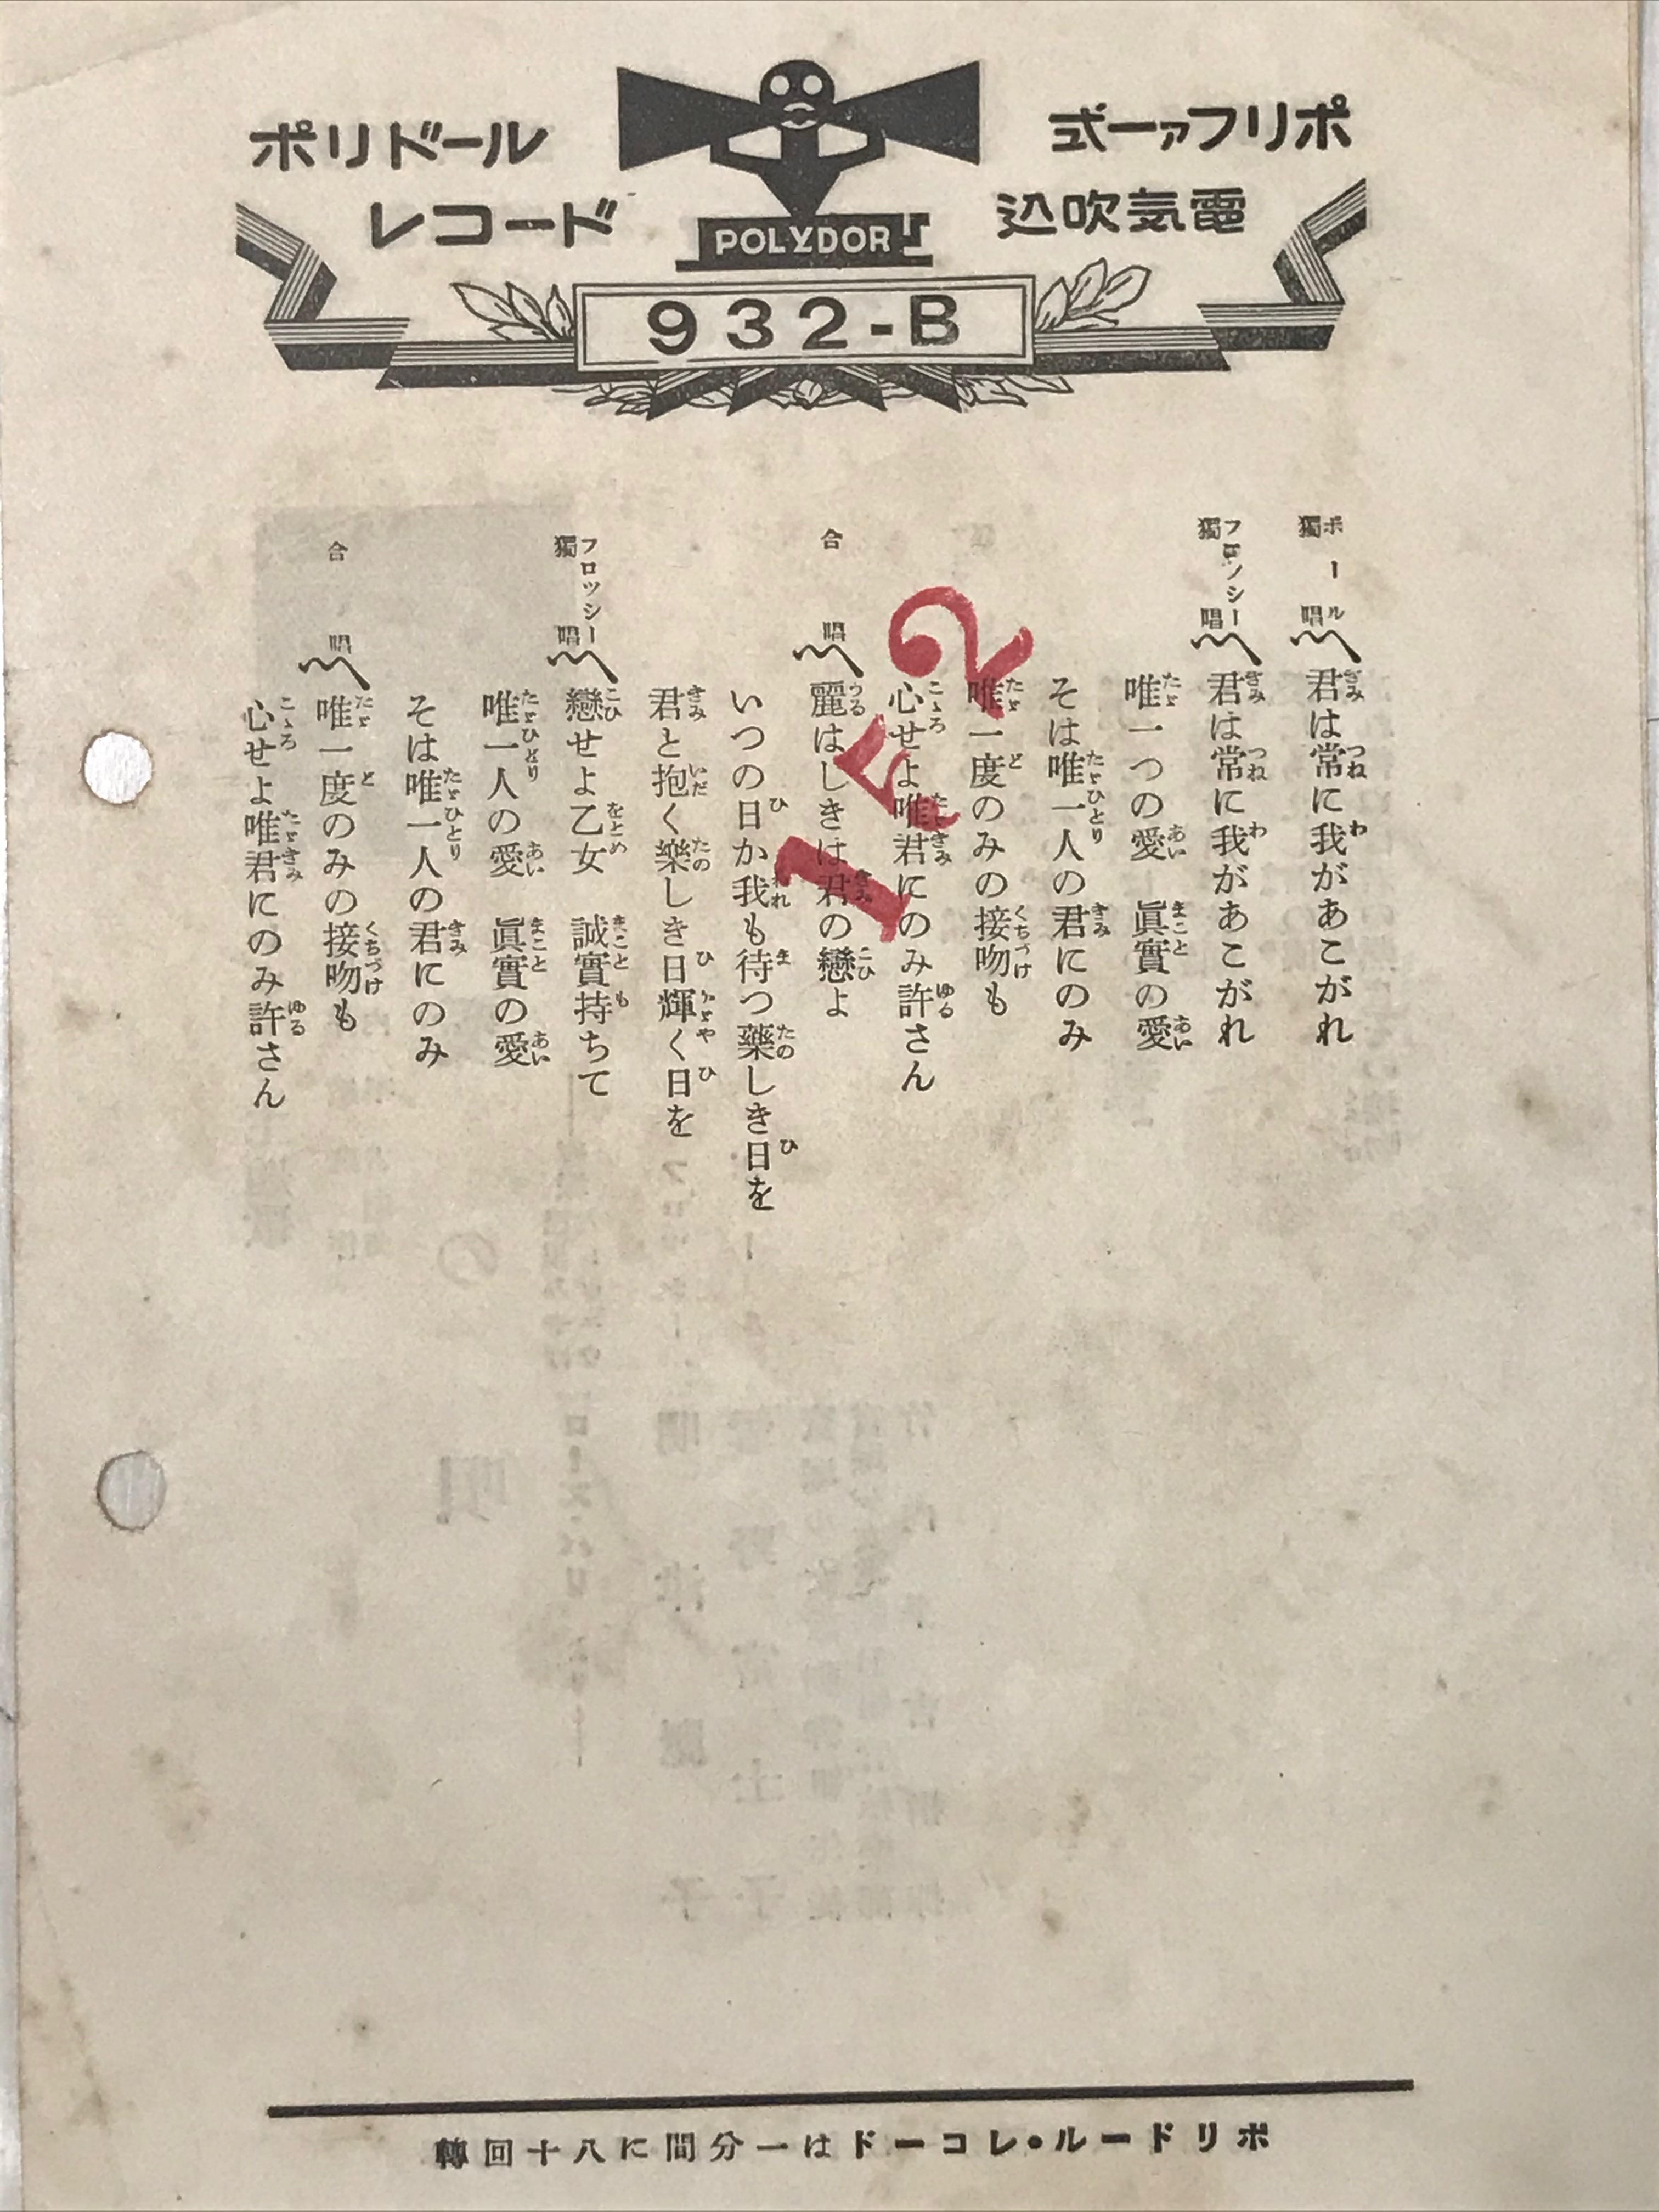 ポリドール
レコード
式ーァフリポ
込吹気電
POLYDOR
932-B
ポール獨唱
君は常に我があこがれ
フロッシー獨唱
君は常に我があこがれ
唯一つの愛　眞實の愛
そは唯一人の君にのみ
唯一度のみの接吻も
心せよ唯君にのみ許さん
合唱
麗はしきは君の戀よ
いつの日か我も待つ藥しき日を
君と抱く樂しき日輝く日を
フロッシー獨唱
戀せよ乙女　誠實持ちて
唯一人の愛　眞實の愛
そは唯一人の君にのみ
合唱
唯一度のみの接吻も
心せよ唯君にのみ許さん
152
轉回十八に間分一はドーコレ•ルードリポ